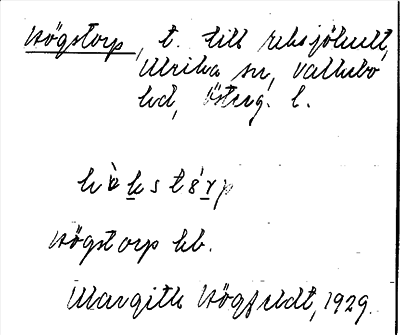 Högstorp, t. till Rexsjöhult,
Ulrika sn, Valkebo
hd, Österg. l.
Högstorp kb.
Margith Högfeldt, 1929.